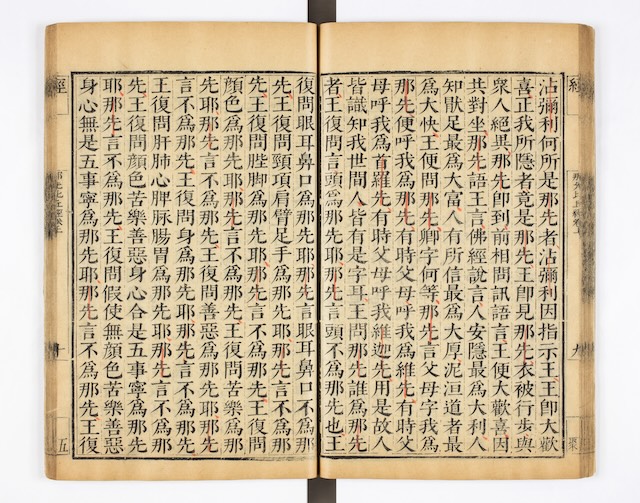 沾彌利何所是那先者沾彌利因指示王王卽大歡
喜正我所隱者竟是那先王卽見那先衣被行步與
衆人絕異那先卽到前相問訊語言王便大歡喜因
共對坐那先語王言佛經說言人安隱最爲大利人
知猒足最爲大富人有所信最爲大厚泥洹道者最
爲大快王便問那先卿字何等那先言父母字我爲
那先便呼我爲那先有時父母呼我爲維先有時父
母呼我爲首羅先有時父母呼我爲維迦先用是故人
皆識知我世間人皆有是字耳王問那先誰爲那先
者王復問言頭爲那先耶那先言頭不爲那先也王
復問眼耳鼻口爲那先耶那先言眼耳鼻口不爲那
先王復問頸項肩臂足手爲那先耶那先言不爲那
先王復問䏶脚爲那先耶那先言不爲那先王復問
顏色爲那先耶那先言不爲那先王復問苦樂爲那
先耶那先言不爲那先王復問善惡爲那先耶那先
言不爲那先王復問身爲那先耶那先言不爲那先
王復問肝肺心脾脉腸胃爲那先耶那先言不爲那
先王復問顏色苦樂善惡身心合是五事寧爲那先
耶那先言不爲那先王復問假使無顏色苦樂善惡
身心無是五事寧爲那先耶那先言不爲那先王復
經
十
五